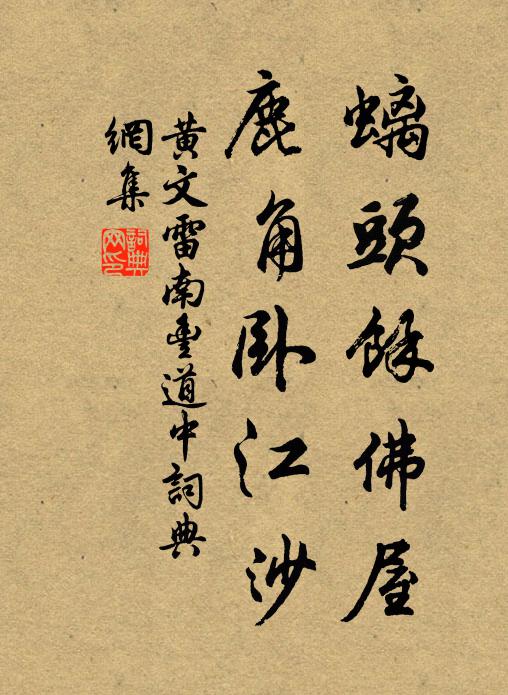 螭頭餘佛屋
鹿角卧江沙
黄文雷南豊道中詞典
網集
詞典
网印